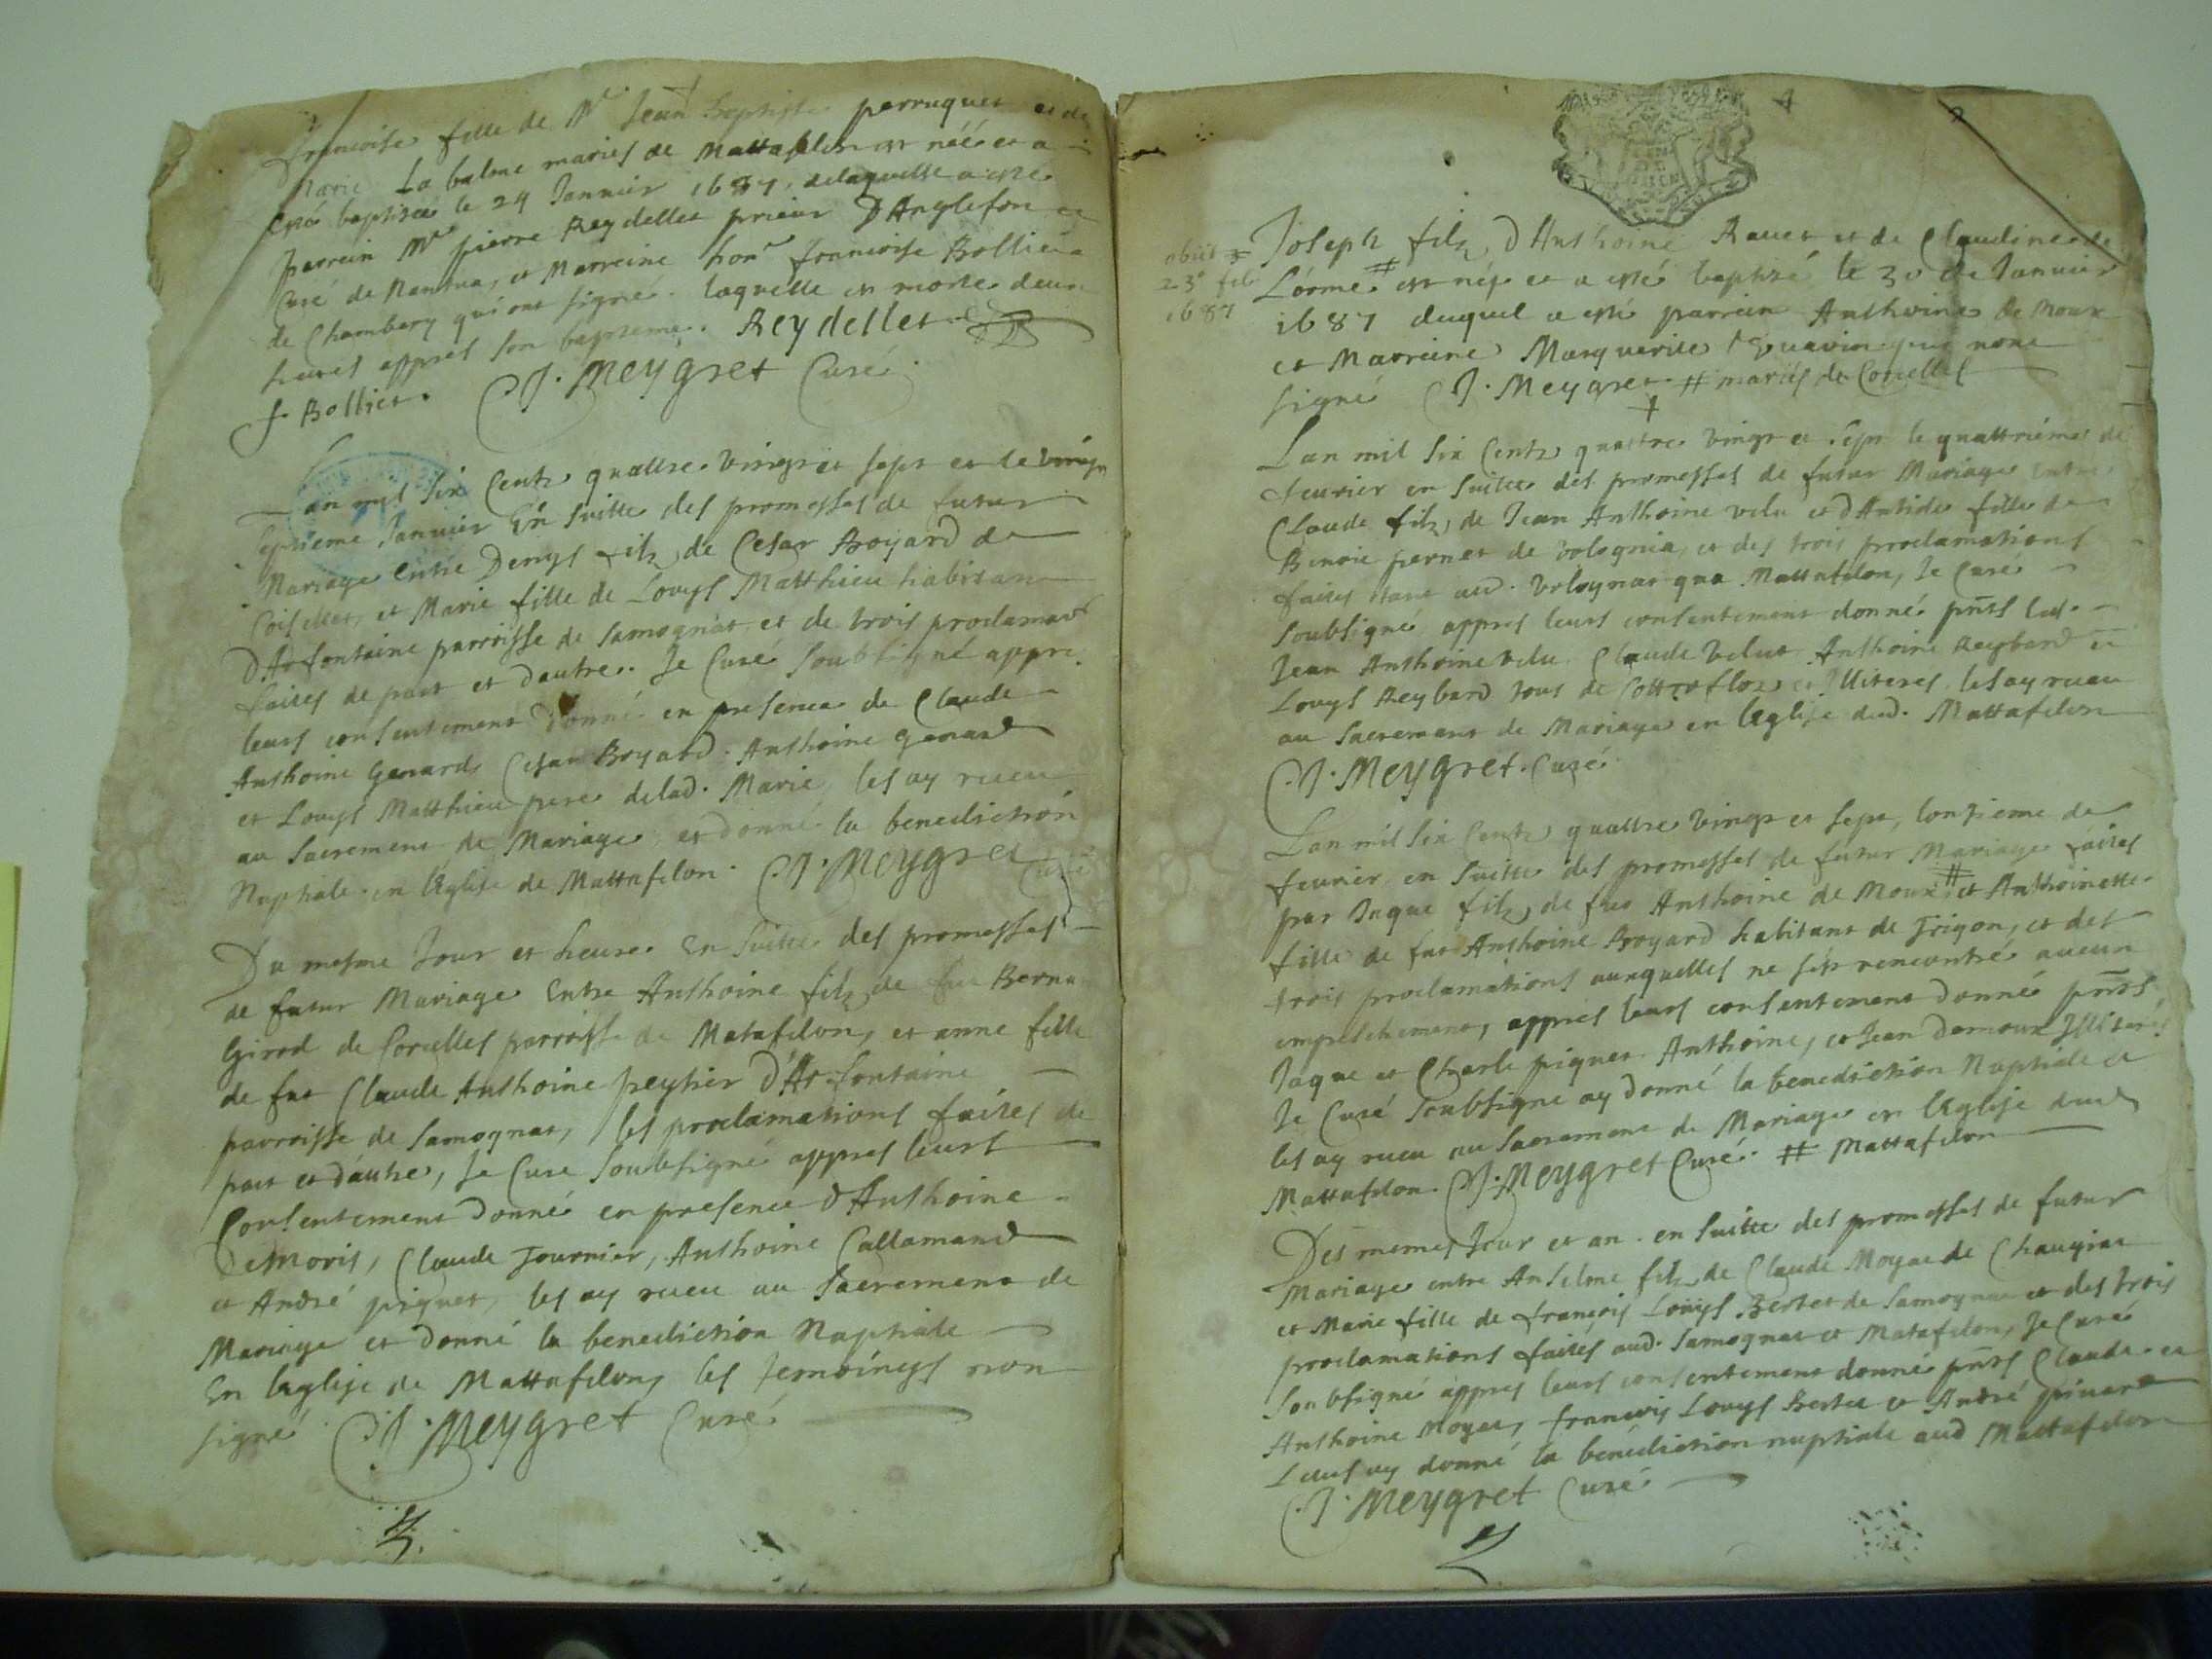 Francoise fille de Mr Jean Baptiste perruquet et de
Marie La balme mariés de Mattafelon est néé et a
esté baptisée le 24 Januier 1687, delaquelle a esté
parrein Mr pierre Reydellet prieur D'Anglefon et
Curé de Nantua, et Marreine honr francoise Bolliet
de Chambery qui ont signé. laquelle est morte deux
heures appres son bapteme. Reydellet
f Bolliet. C J. Meygret Curé.
Lan mil six Centz quattre vingt et sept et le vingt
septieme Januier En suitte des promesses de futur
Mariage Entre Denys filz de Cesar Boyard de
Coiselet, et Marie fille de Louys Matthieu habitant
D'Arfontaine parroisse de Samognat et de trois proclamaons
faites de part et dautre. Je Curé Soubsigné appres
leurs consentement donné en presence de Claude
Anthoine Genard, Cesar Boyard. Anthoine Genard
et Louys Matthieu pere delad. Marie, les ay receu
au Sacrement de Mariage et donné la benediction
Nuptiale en lEglise de Mattafelon. C J. Meygret Curé
Du mesme Jour et heure En Suitte des promesses
de futur Mariage Entre Anthoine filz de feu Berna
Girod de Corcelles parroisse de Matafelon, et anne fille
de fut Claude Anthoine peytier D'Arfontaine
parroisse de Samognat, les proclamations faites de
part et d'autre, Je Cure Soubsigné appres leurs
Consentement donné en presence d'Anthoine
Demoris, Claude Tournier, Anthoine Callamand
et André piquet, les ay receu au Sacrement de
Mariage et donné la benediction Nuptiale
En lEglise de Mattafelon, les temoingts non
signé. C J. Meygret Curé
obiit
23e feb
1687
Joseph filz d'Anthoine Rauet et de Claudine de
Lorme # est néé et a esté baptisé le 30 de Januier
1687 duquel a esté parrein Anthoine de Moux
et Marreine Marguerite qui nont
signé C J. Meygret # mariés de Corcelles
Lan mil six Centz quattre vingt et sept le quattrième de
feurier en suitte des promesses de futur Mariage Entre
Claude filz de Jean Anthoine velu et d'Antide fille de
Benoit pernet de Volognia, et des trois proclamations
faites tant aud. Volognat qua Mattafelon, Je Curé
Soubsigné appres leurs consentement donné pnts led.
Jean Anthoine Velu Claude Velut Anthoine Reybard et
Louys Reybard tous de et Illiterés, les ay receu
au Sacrement de Mariage en lEglise dud. Mattafelon
C J. Meygret. Curé
Lan mil six Centz quattre vingt et sept, lonzieme de
feurier, en suitte des promesses de futur Mariage faites
par Jaque filz de feu Anthoine de Moux # et Anthoinette
fille de fut Anthoine Boyard habitant de Trigon, et des
trois proclamations auxquelles ne sest rencontré aucun
empeschement, appres leurs consentement donné pnts
Jaque et Charle piquet Anthoine, et Jean demoux Illiterés
Je Curé Soubsigne ay donné la benediction Nuptiale et
les ay receu au Sacrement de Mariage en lEglise dud
Mattafelon. C J. Meygret Curé. # Mattafelon
Des memes Jour et an. en suitte des promesses de futur
Mariage entre Anselme filz de Claude Moyat de Chaugiat
et Marie fille de francois Louys Bertet de Samognat et des trois
proclamations faites aud. Samognat et Matafelon, Je Curé
Soubsigné appres leurs consentement donné pnts Claude et
Anthoine Moyat, francois Louys Bertet et André
Leurs ay donné la benediction nuptiale aud Mattafelon
C J. Meygret Curé